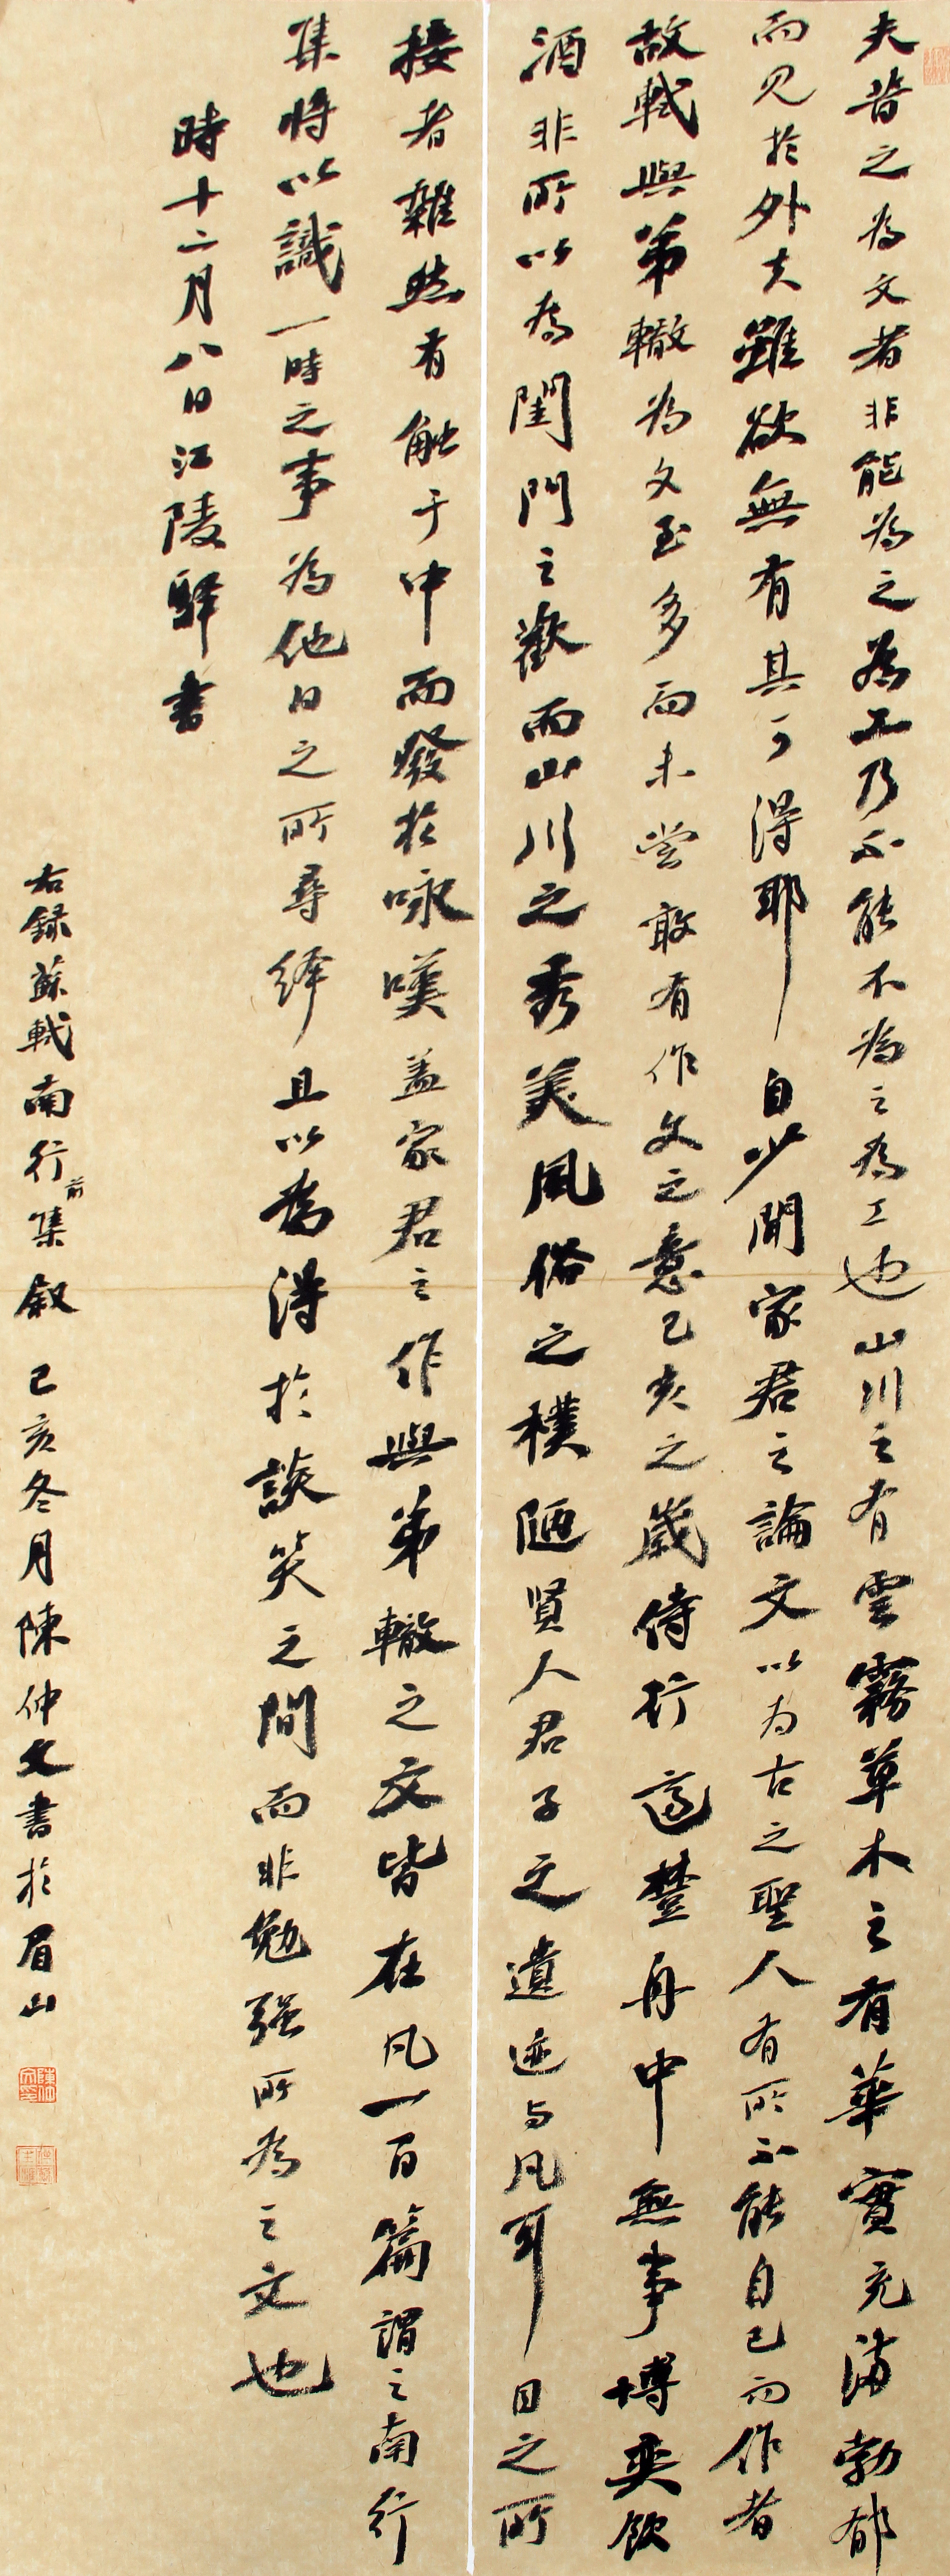 夫昔之為文者非能為之為工乃不能不為之為工也山川之有雲霧草木之有華實充滿勃郁
而見於外夫雖欲無有其可得耶自少聞家君之論文以为古之聖人有所不能自已而作者
故軾與弟轍為文至多而未嘗敢有作文之意己亥之歲侍行適楚舟中無事博奕飲
酒非所以為閨門之歡而山川之秀美風俗之樸陋賢人君子之遺迹与凡耳目之所
接者雜然有触于中而發於咏嘆盖家君之作與弟轍之文皆在凡一百篇謂之南行
集將以識一時之事為他日之所尋繹且以為得於談笑之間而非勉强所為之文也
時十二月八日江陵驛書
右録蘇軾南行前集叙 己亥冬月陳仲文書於眉山
陳仲文印